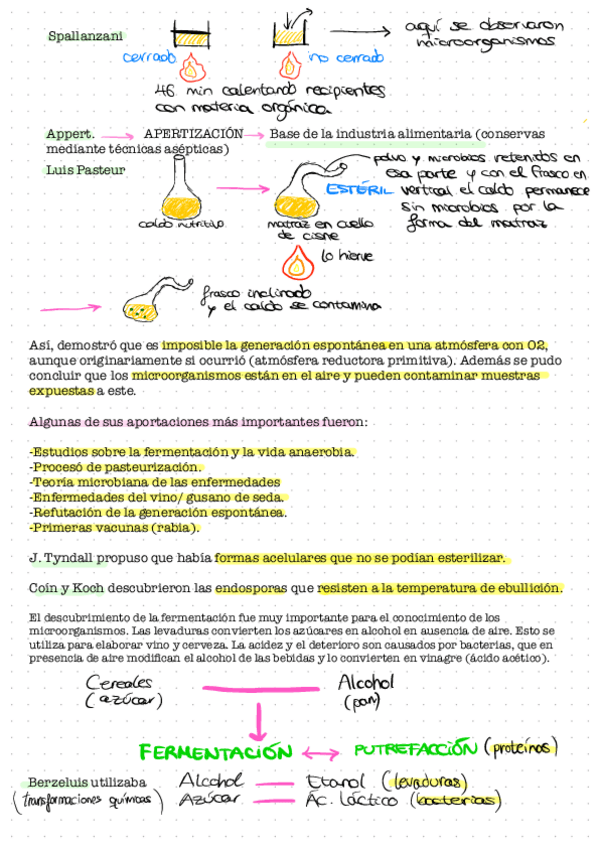 Spallanzani
cerrado
no cerrado
aquí se observaron
microorganismos
46 min calentando recipientes
con materia orgánica
Appert. APERTIZACIÓN Base de la industria alimentaria (conservas
mediante técnicas asépticas)
Luis Pasteur
caldo nutritivo
matraz en cuello
de cisne
ESTÉRIL
polvo y microbios retenidos en
esa parte y con el frasco en
vertical el caldo permanece
sin microbios por la
forma del matraz
lo hierve
frasco inclinado
y el caldo se contamina
Así, demostró que es imposible la generación espontánea en una atmósfera con O2,
aunque originariamente si ocurrió (atmósfera reductora primitiva). Además se pudo
concluir que los microorganismos están en el aire y pueden contaminar muestras
expuestas a este.
Algunas de sus aportaciones más importantes fueron:
-Estudios sobre la fermentación y la vida anaerobia.
-Procesó de pasteurización.
-Teoría microbiana de las enfermedades
-Enfermedades del vino/ gusano de seda.
-Refutación de la generación espontánea.
-Primeras vacunas (rabia).
J. Tyndall propuso que había formas acelulares que no se podían esterilizar.
Coín y Koch descubrieron las endosporas que resisten a la temperatura de ebullición.
El descubrimiento de la fermentación fue muy importante para el conocimiento de los
microorganismos. Las levaduras convierten los azúcares en alcohol en ausencia de aire. Esto se
utiliza para elaborar vino y cerveza. La acidez y el deterioro son causados por bacterias, que en
presencia de aire modifican el alcohol de las bebidas y lo convierten en vinagre (ácido acético).
Cereales Alcohol
(azúcar) (pan)
FERMENTACIÓN PUTREFACCIÓN (proteínas)
Berzeluis utilizaba Alcohol Etanol (levaduras)
(transformaciones químicas) Azúcar Ác. láctico (bacterias)